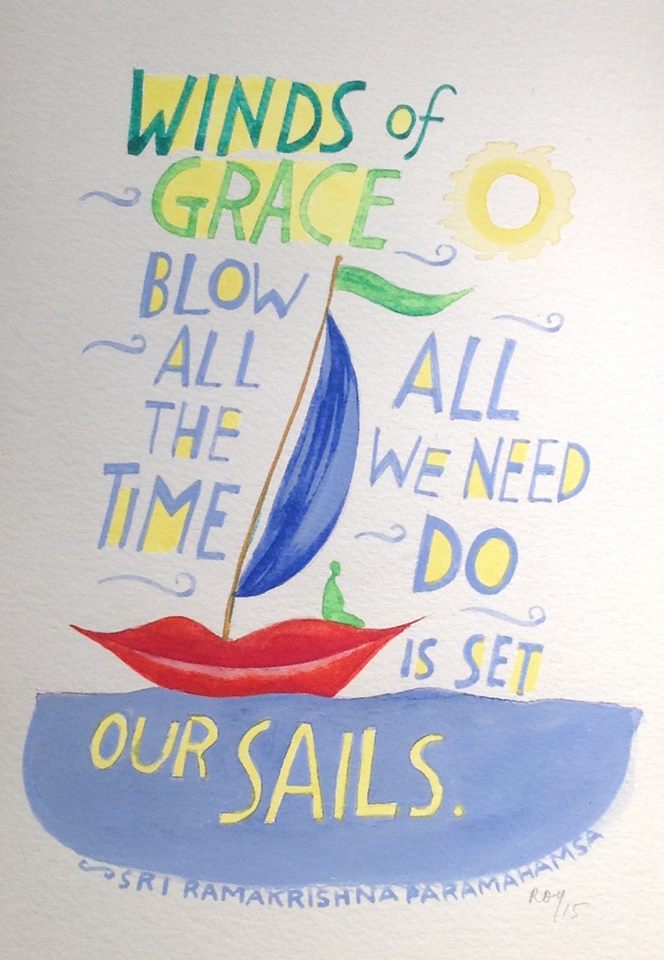 WINDS of
GRACE
BLOW
ALL
THE
TIME
ALL
WE NEED
DO
IS SET
OUR SAILS.
~SRI RAMAKRISHNA PARAMAHAMSA
ROY/15